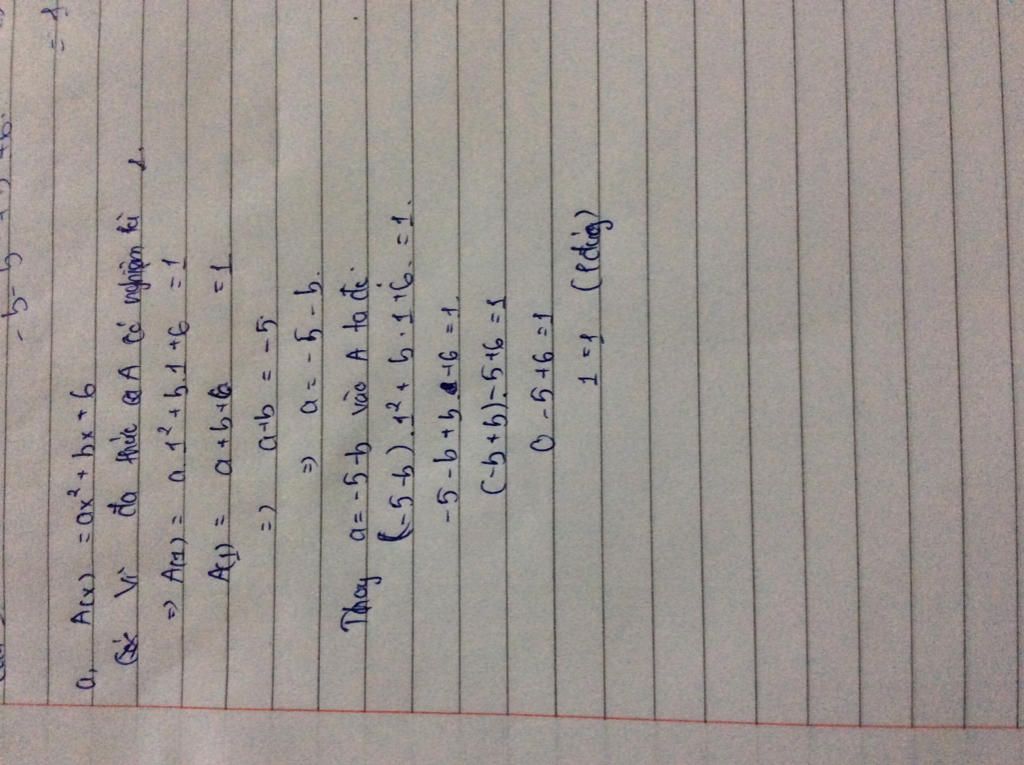 a, A(x) = ax² + bx + 6
Vì đa thức A có nghiệm là 1.
=> A(1) = a.1² + b.1 + 6 = 1
A(1) = a + b + 6 = 1
=> a+b = -5
=> a = -5 - b.
Thay a = -5-b vào A ta đc
(-5-b).1² + b.1 + 6 = 1.
-5 - b + b + 6 = 1
(-b+b) - 5 + 6 = 1
0 - 5 + 6 = 1
1 = 1 (đúng)